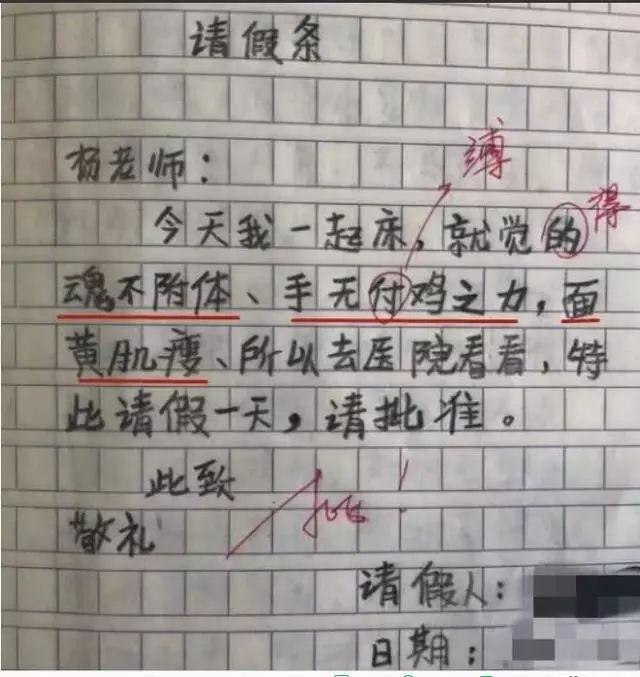 请假条
缚
杨老师：
得
今天我一起床，就觉的
魂不附体、手无付鸡之力，面
黄肌瘦、所以去医院看看，特
此请假一天，请批准。
此致
敬礼
批！
请假人：
日期：